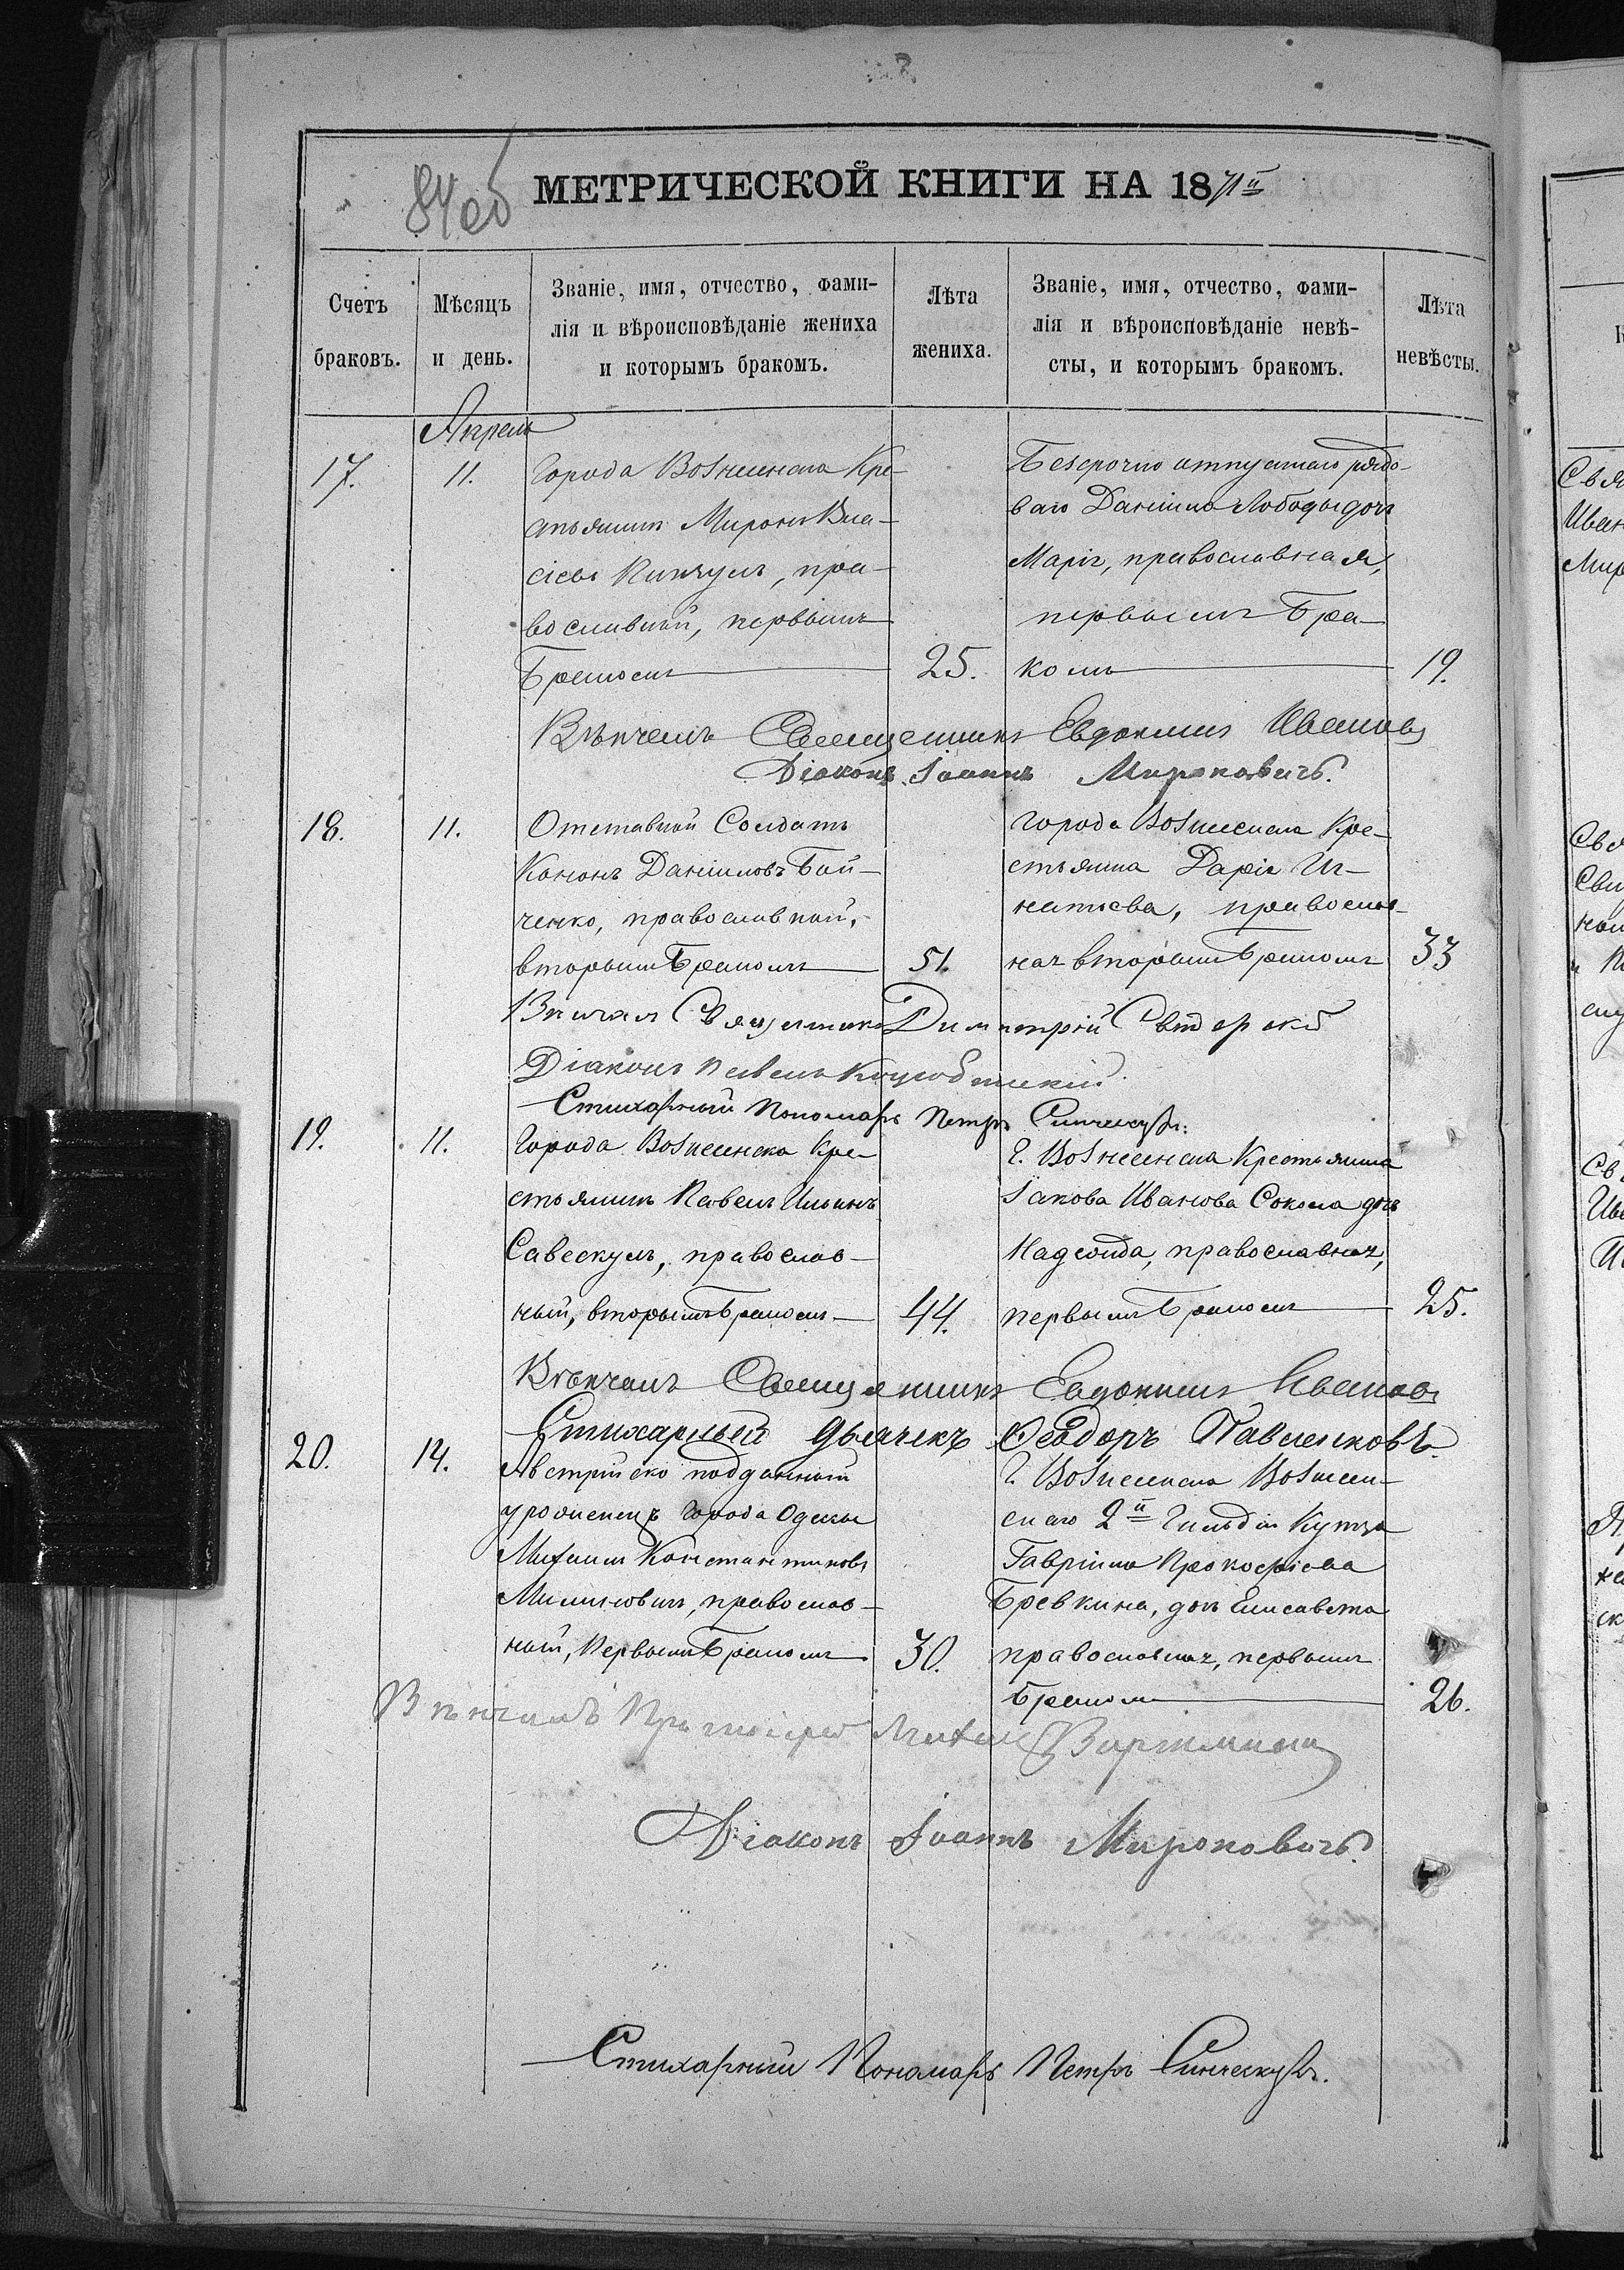 84 об
МЕТРИЧЕСКОЙ КНИГИ НА 1871й
Счетъ браковъ.
Мѣсяцъ и день.
Званіе, имя, отчество, фами-
лія и вѣроисповѣданіе жениха
и которымъ бракомъ.
Лѣта жениха.
Званіе, имя, отчество, фами-
лія и вѣроисповѣданіе невѣ-
сты, и которымъ бракомъ.
Лѣта невѣсты.
Апрель
17. 11.
Города Вознесенска Кре-
стьянинъ Миронъ Вла-
сіевъ, пра-
вославный, первымъ
бракомъ 25.
Безсрочно отпускнаго рядо-
ваго Даніила Лободы дочь
Марія, православная,
первымъ бра-
комъ 19.
Вѣнчалъ Священникъ Евдокимъ Ивановъ
Діаконъ Іоаннъ Мироновичъ.
18. 11.
Отставной Солдатъ
Кононъ Даніиловъ Бой-
ченко, православный,
вторымъ бракомъ 51.
Города Вознесенска Кре-
стьянка Дарія Иг-
натьева, православ-
ная вторымъ бракомъ 33
Вѣнчалъ Священникъ Димитрій
Діаконъ Павелъ
Стихарный Пономарь Петръ
19. 11.
Города Вознесенска Кре-
стьянинъ Павелъ Ильинъ
Савескулъ, православ-
ный, вторымъ бракомъ 44.
Г. Вознесенска Крестьянина
Іакова Иванова Сокола дочь
Надежда, православная,
первымъ бракомъ 25.
Вѣнчалъ Священникъ Евдокимъ Ивановъ
Стихарный дьячекъ Ѳеодоръ Павленковъ.
20. 14.
Австрійско подданный
уроженецъ Города Одессы
Михаилъ Константиновъ
православ-
ный, первымъ бракомъ 30.
Г. Вознесенска Вознесен-
скаго 2й Гильдіи Купца
Гавріила Прокофіева
Бревкина, дочь Елисавета
православная, первымъ
бракомъ 26.
Вѣнчалъ Протоіерей Михаилъ
Діаконъ Іоаннъ Мироновичъ.
Стихарный Пономарь Петръ